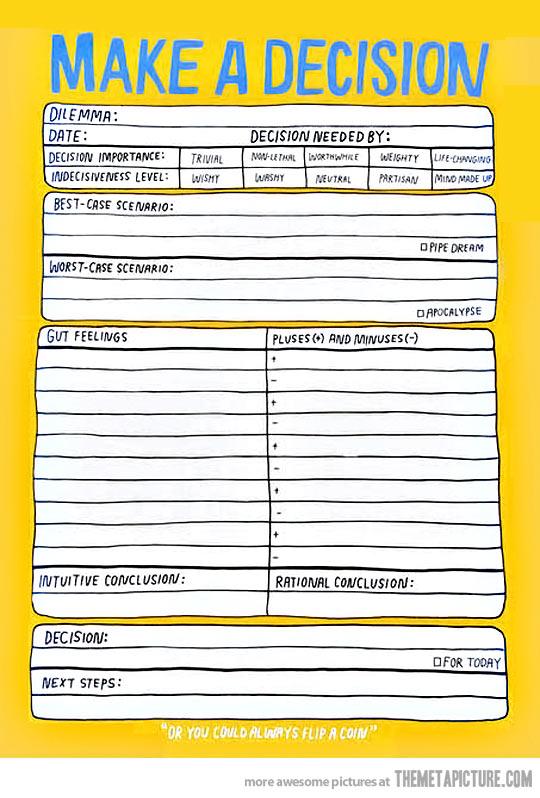 MAKE A DECISION
DILEMMA:
DATE: DECISION NEEDED BY:
DECISION IMPORTANCE: TRIVIAL NON-LETHAL WORTHWHILE WEIGHTY LIFE-CHANGING
INDECISIVENESS LEVEL: WISHY WASHY NEUTRAL PARTISAN MIND MADE UP
BEST-CASE SCENARIO:
PIPE DREAM
WORST-CASE SCENARIO:
APOCALYPSE
GUT FEELINGS PLUSES (+) AND MINUSES (-)
+
-
+
-
+
-
+
-
+
-
INTUITIVE CONCLUSION: RATIONAL CONCLUSION:
DECISION:
FOR TODAY
NEXT STEPS:
"OR YOU COULD ALWAYS FLIP A COIN."
more awesome pictures at THEMETAPICTURE.COM